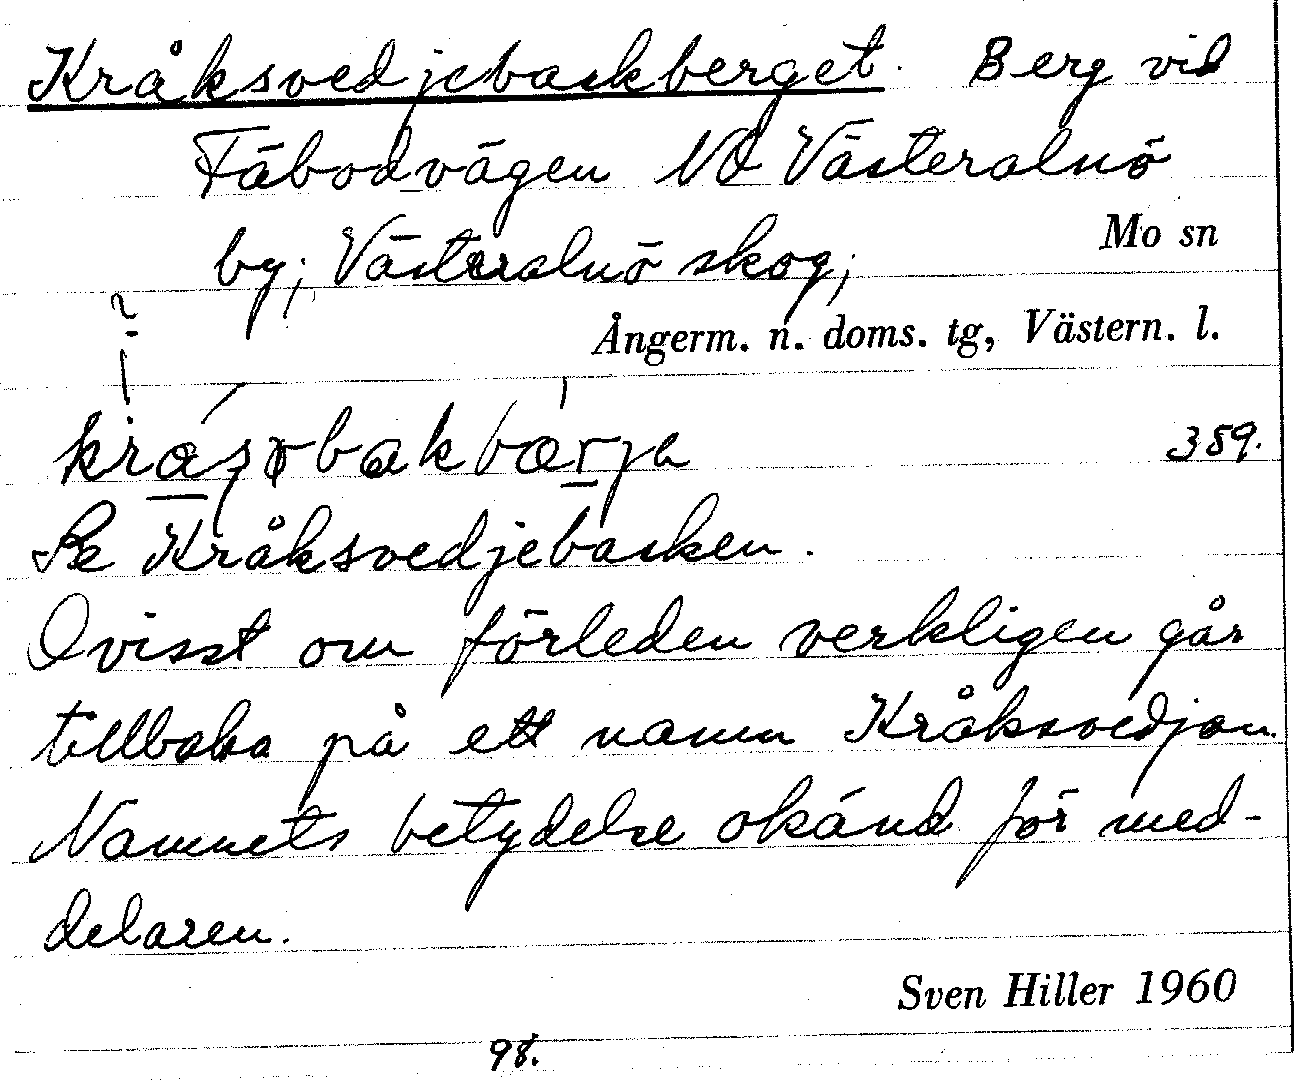 Kråksvedjebackberget. Berg vid
Täbodvägen NO Västeralnö
by; Västeralnö skog;
Mo sn
Ångerm. n. doms. tg, Västern. l.
359.
Se Kråksvedjebacken.
Ovisst om förleden verkligen går
tillbaka på ett namn Kråksvedjan.
Namnets betydelse okänd för med-
delaren.
Sven Hiller 1960
98.